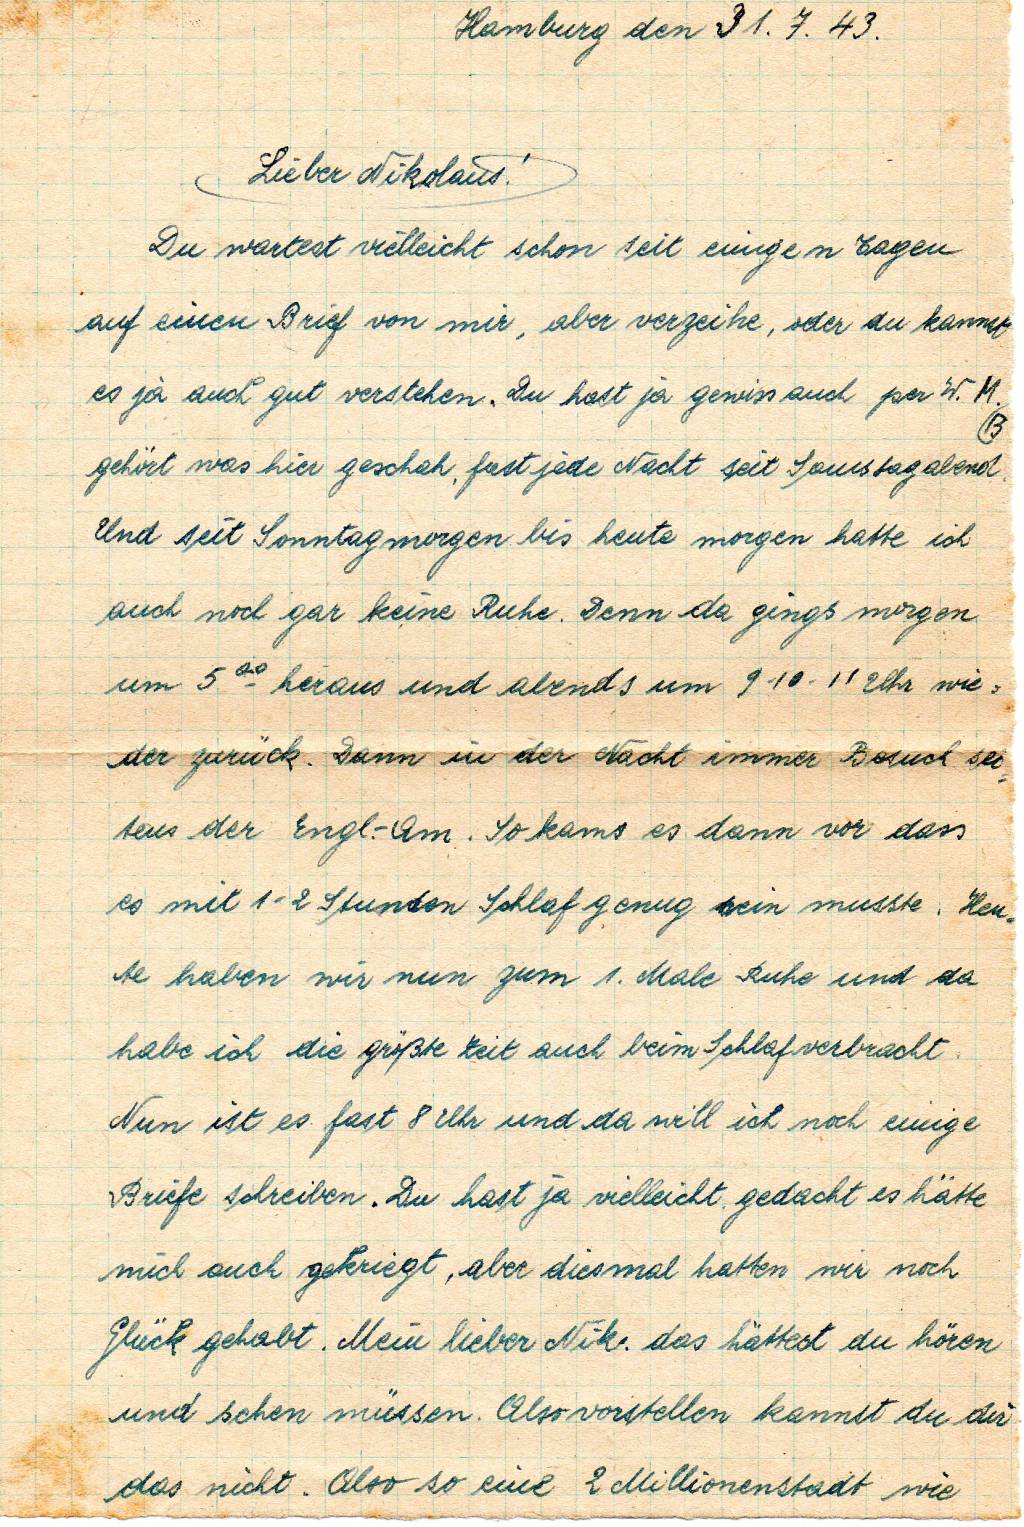 Hamburg den 31. 7. 43.
Lieber Nikolaus!
Du wartest vielleicht schon seit einigen Tagen
auf einen Brief von mir, aber verzeihe, oder du kannst
es ja auch gut verstehen. Du hast ja gewiss auch per W. M.
B
gehört was hier geschah, fast jede Nacht seit Samstagabend.
Und seit Sonntagmorgen bis heute morgen hatte ich
auch noch gar keine Ruhe. Denn da gings morgen
um 5 00 heraus und abends um 9-10-11 Uhr wie=
der zurück. Dann in der Nacht immer Besuch sei=
tens der Engl.-Am. So kams es dann vor dass
es mit 1-2 Stunden Schlaf genug sein musste. Heu=
te haben wir nun zum 1. Male Ruhe und da
habe ich die größte Zeit auch beim Schlaf verbracht.
Nun ist es fast 8 Uhr und da will ich noch einige
Briefe schreiben. Du hast ja vielleicht gedacht es hätte
mich auch gekriegt, aber diesmal hatten wir noch
Glück gehabt. Mein lieber Nik. das hättest du hören
und sehen müssen. Also vorstellen kannst du dir
das nicht. Also so eine 2 Millionenstadt wie